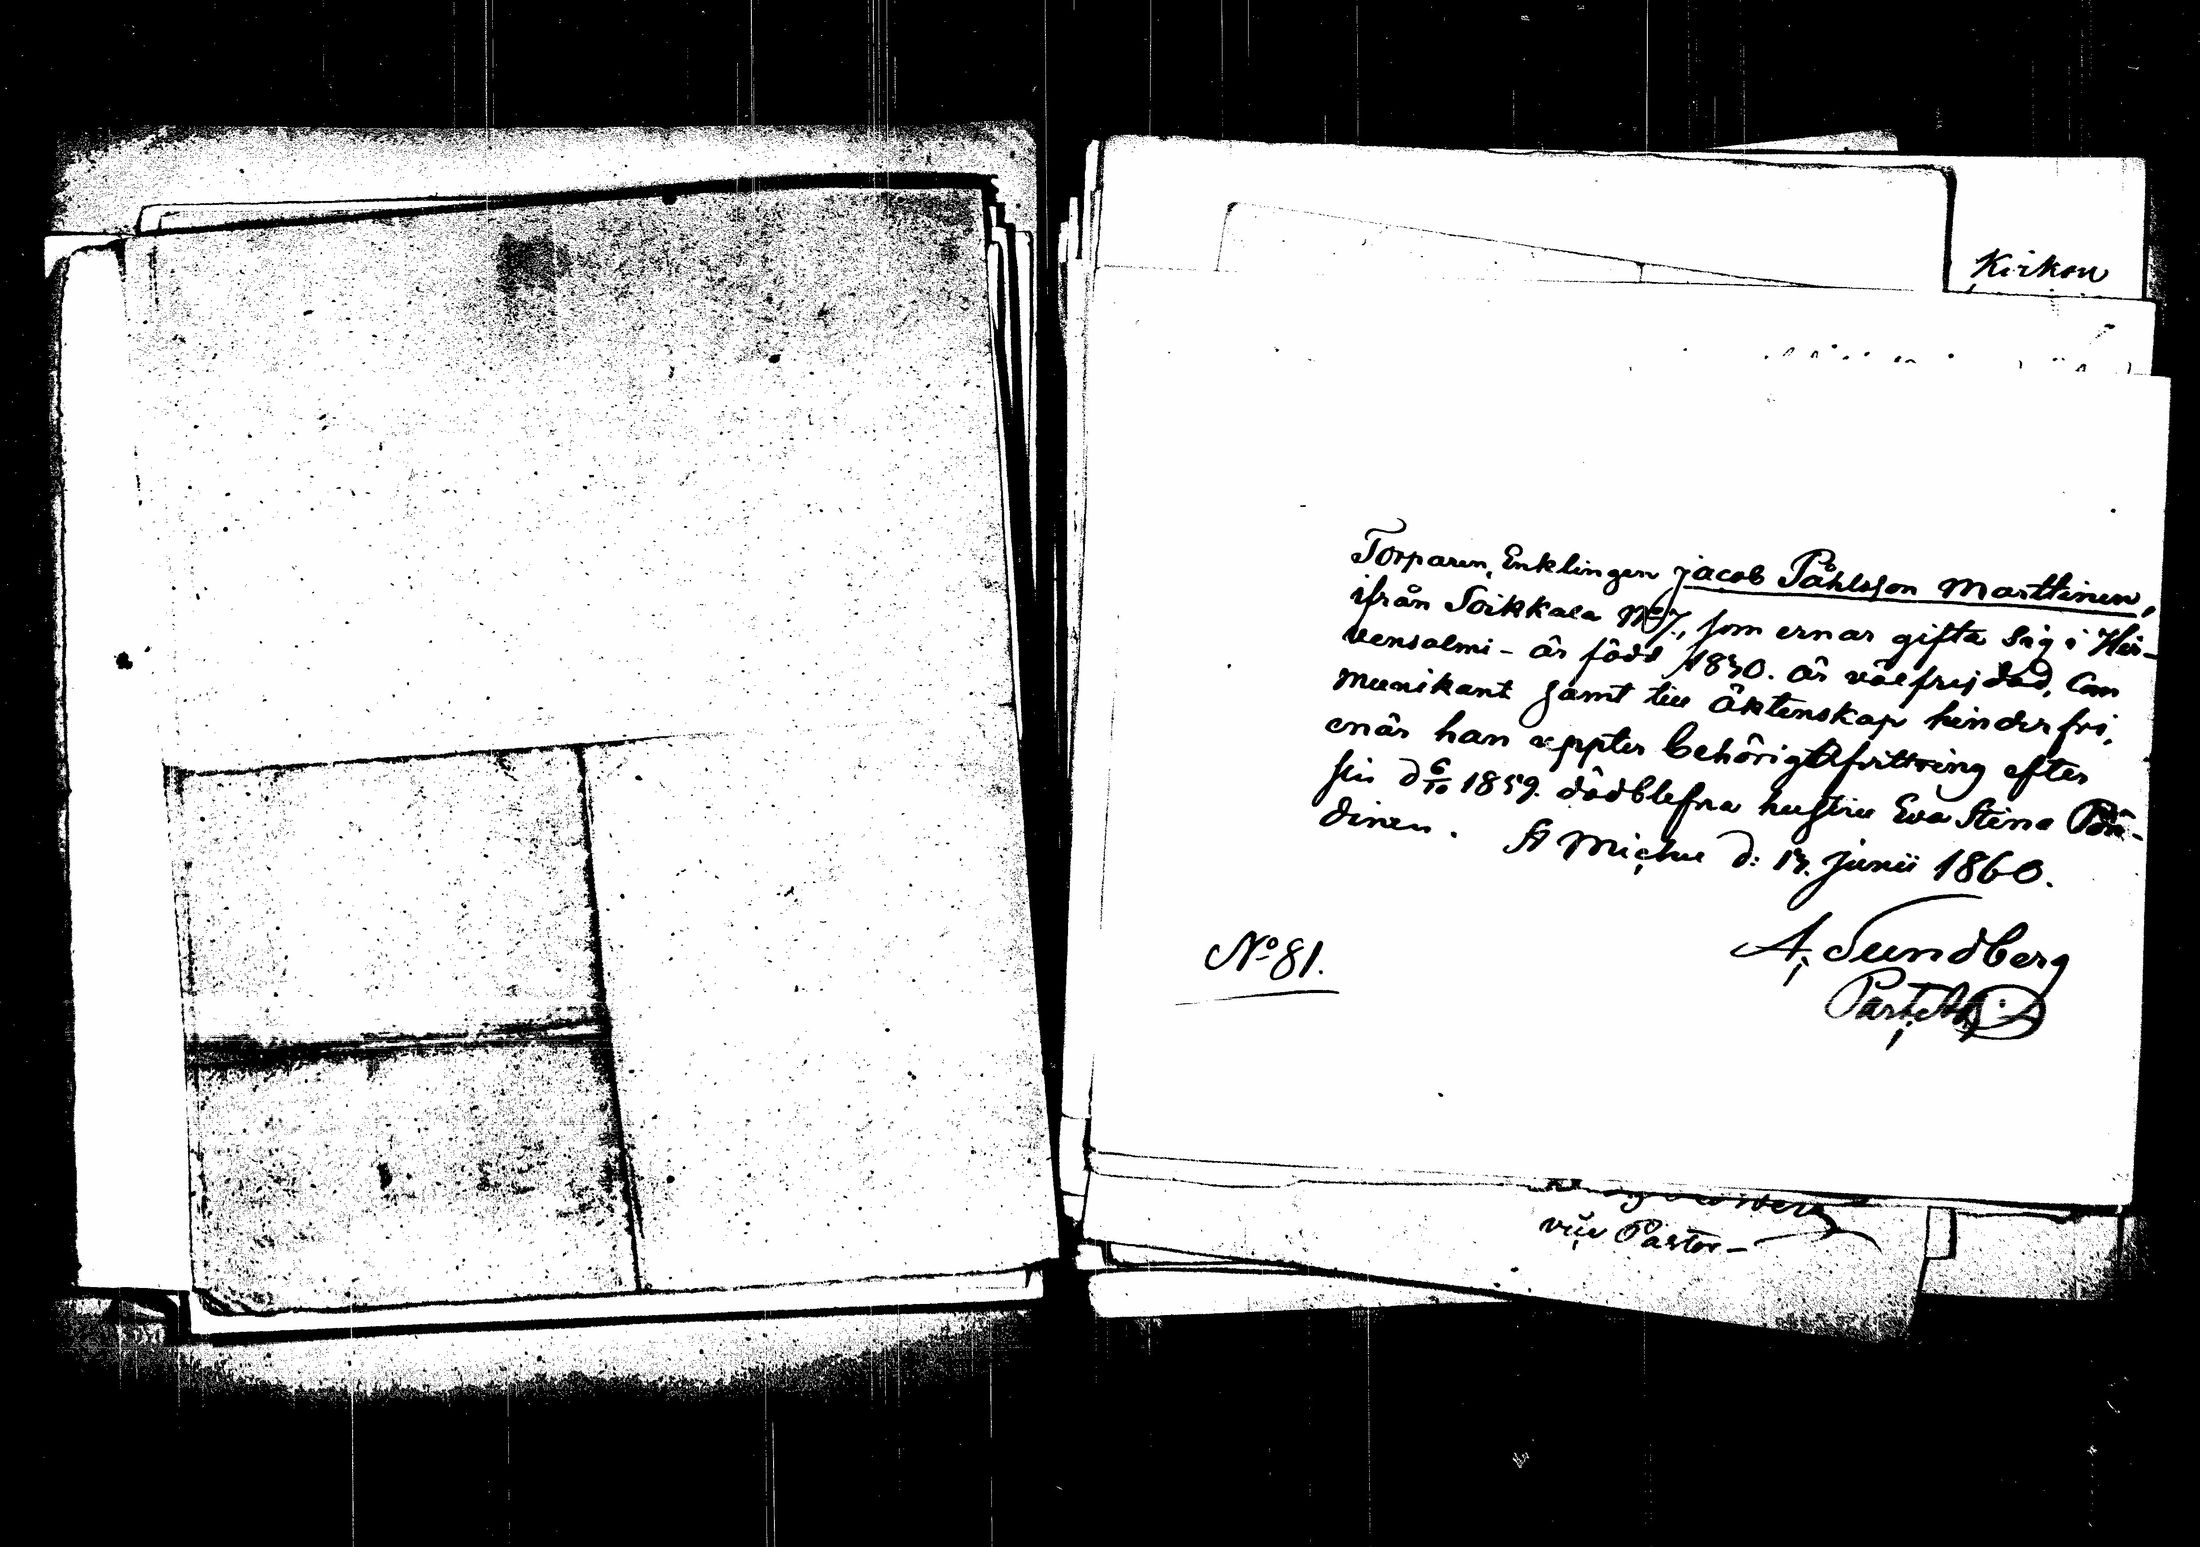 Kirkon
Torparen, Enklingen Jacob Påhlsson Marttinen,
ifrån Soikkala No 7, som ernar gifta sig i Hir-
vensalmi - är född 1830. är välfrejdad, Com
munikant samt till äktenskap hinderfri,
enär han uppter behörigt afvittring efter
sin d 6/10 1859. dödblefna hustru Eva Stina
dinen. St Michel d: 13. Junii 1860.
No 81.
A. Sundberg
Past.
vice Pastor-